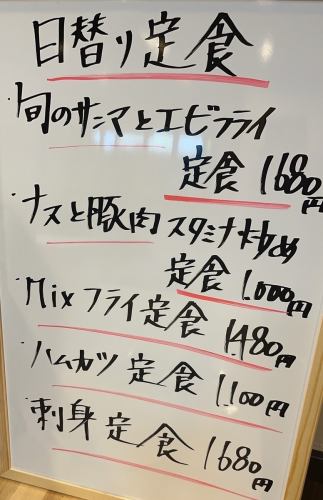 日替り定食
・旬のサンマとエビフライ
定食 1680円
・ナスと豚肉スタミナ炒め
定食 1.000円
・Mixフライ定食 1,480円
・ハムカツ定食 1,100円
・刺身定食 1680円